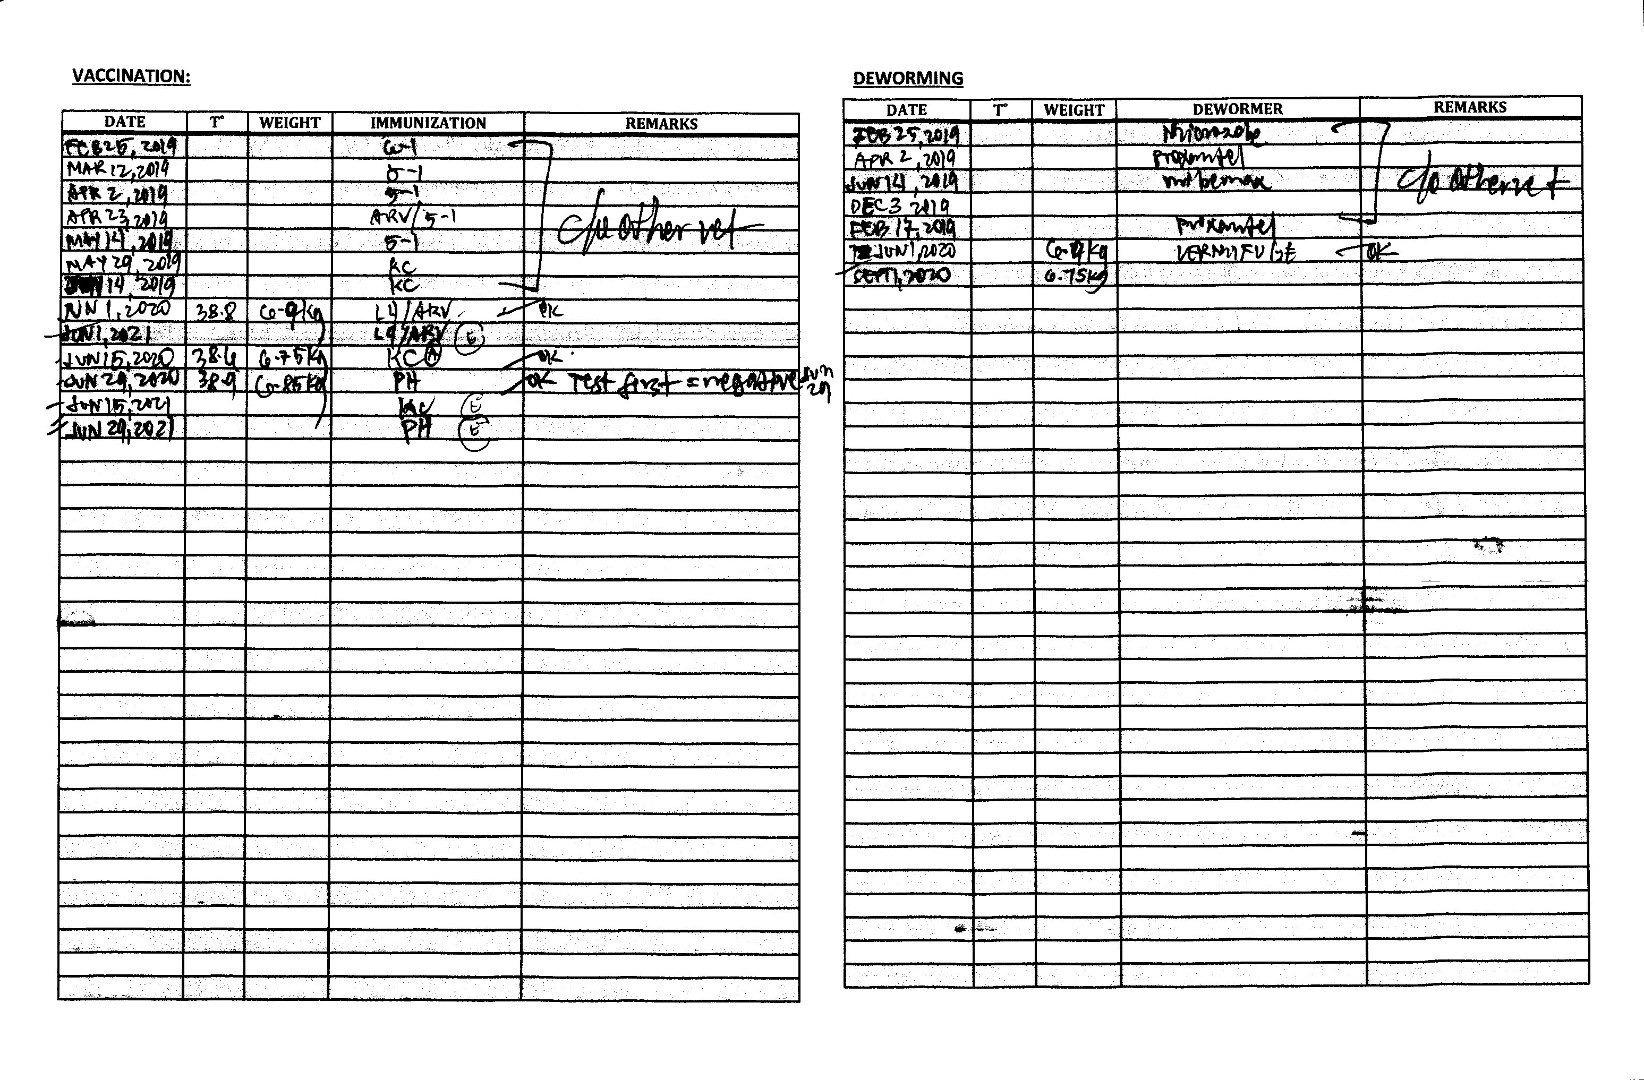 VACCINATION:
DATE T° WEIGHT IMMUNIZATION REMARKS
FEB 25, 2019 6-1
MAR 12, 2019 5-1
APR 2, 2019 5-1
APR 23, 2019 ARV/5-1
c/o other vet
MAY 14, 2019 5-1
MAY 29, 2019 KC
JUN 14, 2019 KC
JUN 1, 2020 38.8 6.9kg L4/ARV OK
JUN 1, 2021 L4/ARV E
JUN 15, 2020 38.6 6.75kg KC A OK
JUN 29, 2020 38.9 6.85kg PH OK Test first = negative Jun 29
JUN 15, 2021 KC E
JUN 29, 2021 PH E
DEWORMING
DATE T° WEIGHT DEWORMER REMARKS
FEB 25, 2019
APR 2, 2019
JUN 14, 2019 milbemax
c/o other vet
DEC 3 2019
FEB 17, 2019
JUN 1, 2020 6.9kg VERMIFUGE OK
SEPT 1, 2020 6.75kg